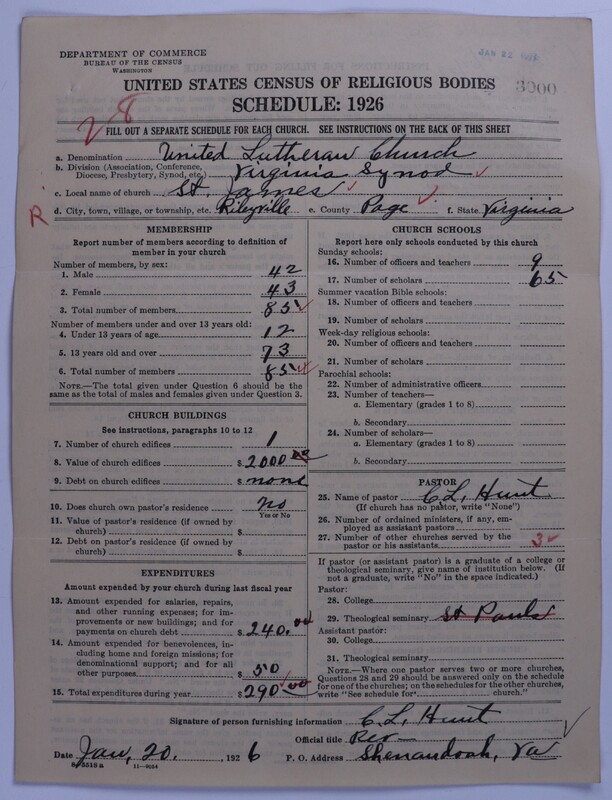 DEPARTMENT OF COMMERCE
BUREAU OF THE CENSUS
WASHINGTON
JAN 22
UNITED STATES CENSUS OF RELIGIOUS BODIES
3000
SCHEDULE: 1926
28
FILL OUT A SEPARATE SCHEDULE FOR EACH CHURCH. SEE INSTRUCTIONS ON THE BACK OF THIS SHEET
a. Denomination United Lutheran Church
b. Division (Association, Conference, Diocese, Presbytery, Synod, etc.) Virginia Synod
c. Local name of church St. James
R
d. City, town, village, or township, etc. Rileyville e. County Page f. State Virginia
MEMBERSHIP
Report number of members according to definition of
member in your church
Number of members, by sex:
1. Male 42
2. Female 43
3. Total number of members 85
Number of members under and over 13 years old:
4. Under 13 years of age 12
5. 13 years old and over 73
6. Total number of members 85
NOTE.—The total given under Question 6 should be
the same as the total of males and females given under Question 3.
CHURCH BUILDINGS
See instructions, paragraphs 10 to 12
7. Number of church edifices 1
8. Value of church edifices $ 2000 00
9. Debt on church edifices $ none
10. Does church own pastor's residence? no
Yes or No
11. Value of pastor's residence (if owned by
church) $
12. Debt on pastor's residence (if owned by
church) $
EXPENDITURES
Amount expended by your church during last fiscal year
13. Amount expended for salaries, repairs,
and other running expenses; for im-
provements or new buildings; and for
payments on church debt $ 240.00
14. Amount expended for benevolences, in-
cluding home and foreign missions; for
denominational support; and for all
other purposes $ 50
15. Total expenditures during year $ 290 00
CHURCH SCHOOLS
Report here only schools conducted by this church
Sunday schools:
16. Number of officers and teachers 9
17. Number of scholars 65
Summer vacation Bible schools:
18. Number of officers and teachers
19. Number of scholars
Week-day religious schools:
20. Number of officers and teachers
21. Number of scholars
Parochial schools:
22. Number of administrative officers
23. Number of teachers—
a. Elementary (grades 1 to 8)
b. Secondary
24. Number of scholars—
a. Elementary (grades 1 to 8)
b. Secondary
PASTOR
25. Name of pastor C. L. Hunt
(If church has no pastor, write "None")
26. Number of ordained ministers, if any, em-
ployed as assistant pastors
27. Number of other churches served by the
pastor or his assistants 3
If pastor (or assistant pastor) is a graduate of a college or
theological seminary, give name of institution below. (If
not a graduate, write "No" in the space indicated.)
Pastor:
28. College
29. Theological seminary St Pauls
Assistant pastor:
30. College
31. Theological seminary
NOTE.—Where one pastor serves two or more churches,
Questions 28 and 29 should be answered only on the schedule
for one of the churches; on the schedules for the other churches,
write "See schedule for church."
Signature of person furnishing information C. L. Hunt
Official title Rev
Date Jan. 20. , 1926 P. O. Address Shenandoah, Va
8-5518a 11-9084